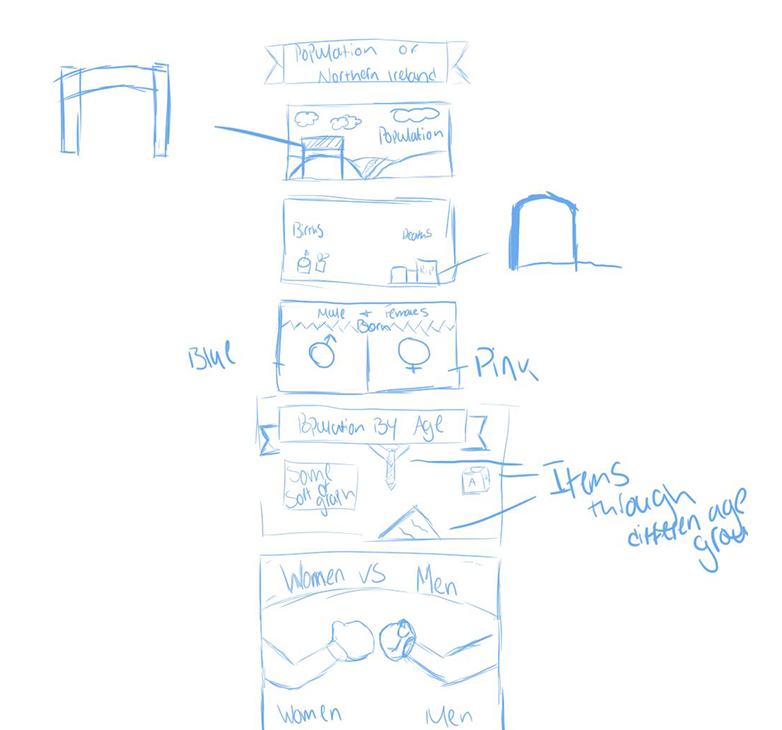 Population of
Northern Ireland
Population
Births
Deaths
R.I.P
Male + Females
Born
Blue
Pink
Population By Age
Some
Sort of
graph
A
Items
through
differen age
grou
Women VS Men
Women
Men